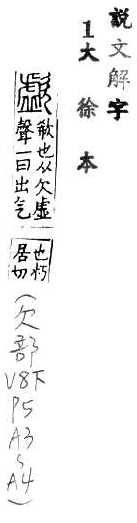 説文解字
1大徐本
歔
欷也从欠虚
聲一曰出气
也朽
居切
(欠部V8下P5A3~A4)